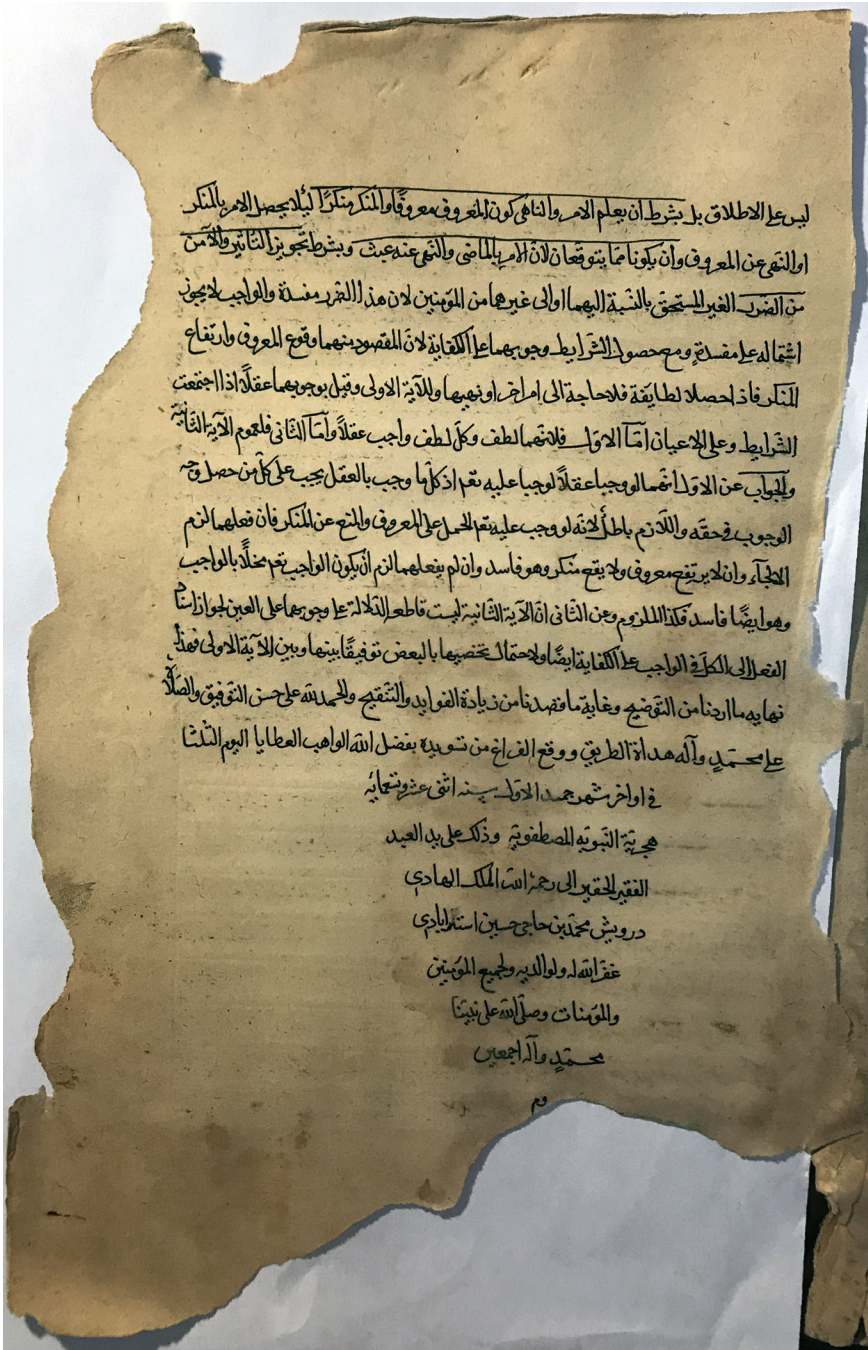 ليس على الاطلاق بل بشرط ان يعلم الامر والناهى كون المعروف معروفًا والمنكر منكرًا ليئلا يحصل الامر بالمنكر
او النهى عن المعروف وان يكونا مما يتوقعان لانّ الامر بالماضى والنهى عنه عبث وبشرط تجويز التاثير والامن
من الضرر الغير المستحق بالنسبة اليهما او الى غيرهما من المؤمنين لان هذا الضرر مفسدة والواجب لا يجوز
اشتماله على مفسدةٍ ومع حصول الشرايط وجوبهما على الكفاية لانّ المقصود منهما وقوع المعروف وارتفاع
المنكر فاذا حصلا لطايفة فلا حاجة الى امر اخر او نهيها وللآية الاولى وقيل بوجوبهما عقلًا اذا اجتمعت
الشرايط وعلى الاعيان امّا الاوّل فلانّهما لطف وكلّ لطف واجب عقلًا وامّا الثانى فلعموم الآية الثانية
والجواب عن الاول انّهما لو وجبا عقلًا لوجبا عليه تعم اذ كلّ ما وجب بالعقل يجب على كلّ من حصل وجه
الوجوب فى حقه واللازم باطل لانّه لو وجب عليه تعم الحمل على المعروف والمنع عن المنكر فان فعلهما لزم
الالجآء وان لا يرتفع معروف ولا يقع منكر وهو فاسد وان لم يفعلهما لزم ان يكون الواجب تعم مخلًّا بالواجب
وهو ايضًا فاسد فكذا الملزوم وعن الثانى انّ الآية الثانية ليست قاطعة الدلالة على وجوبهما على العين لجواز اسناد
الفعل الى الكل فى الواجب على الكفاية ايضًا ولاحتمال تخصيصها بالبعض توفيقًا بينها وبين الآية الاولى فهذا
نهايه ما اردنا من التوضيح وغاية ما قصدنا من زيادة الفوايد والتنقيح والحمد لله على حسن التوفيق والصلاة
على محمّدٍ وآله هداة الطريق ووقع الفراغ من تسويده بفضل الله الواهب العطايا اليوم الثلثا
فى اواخر شهر جميد الاول سنه اثنى عشر وتسعمائه
هجريّة النّبويّه المصطفويّه وذلك على يد العبد
الفقير الحقير الى رحمة الله الملك الهادى
درويش محمّد بن حاجى حسين استرابادى
غفر الله له ولوالديه ولجميع المؤمنين
والمؤمنات وصلّى الله على نبيّنا
محمّدٍ وآله اجمعين